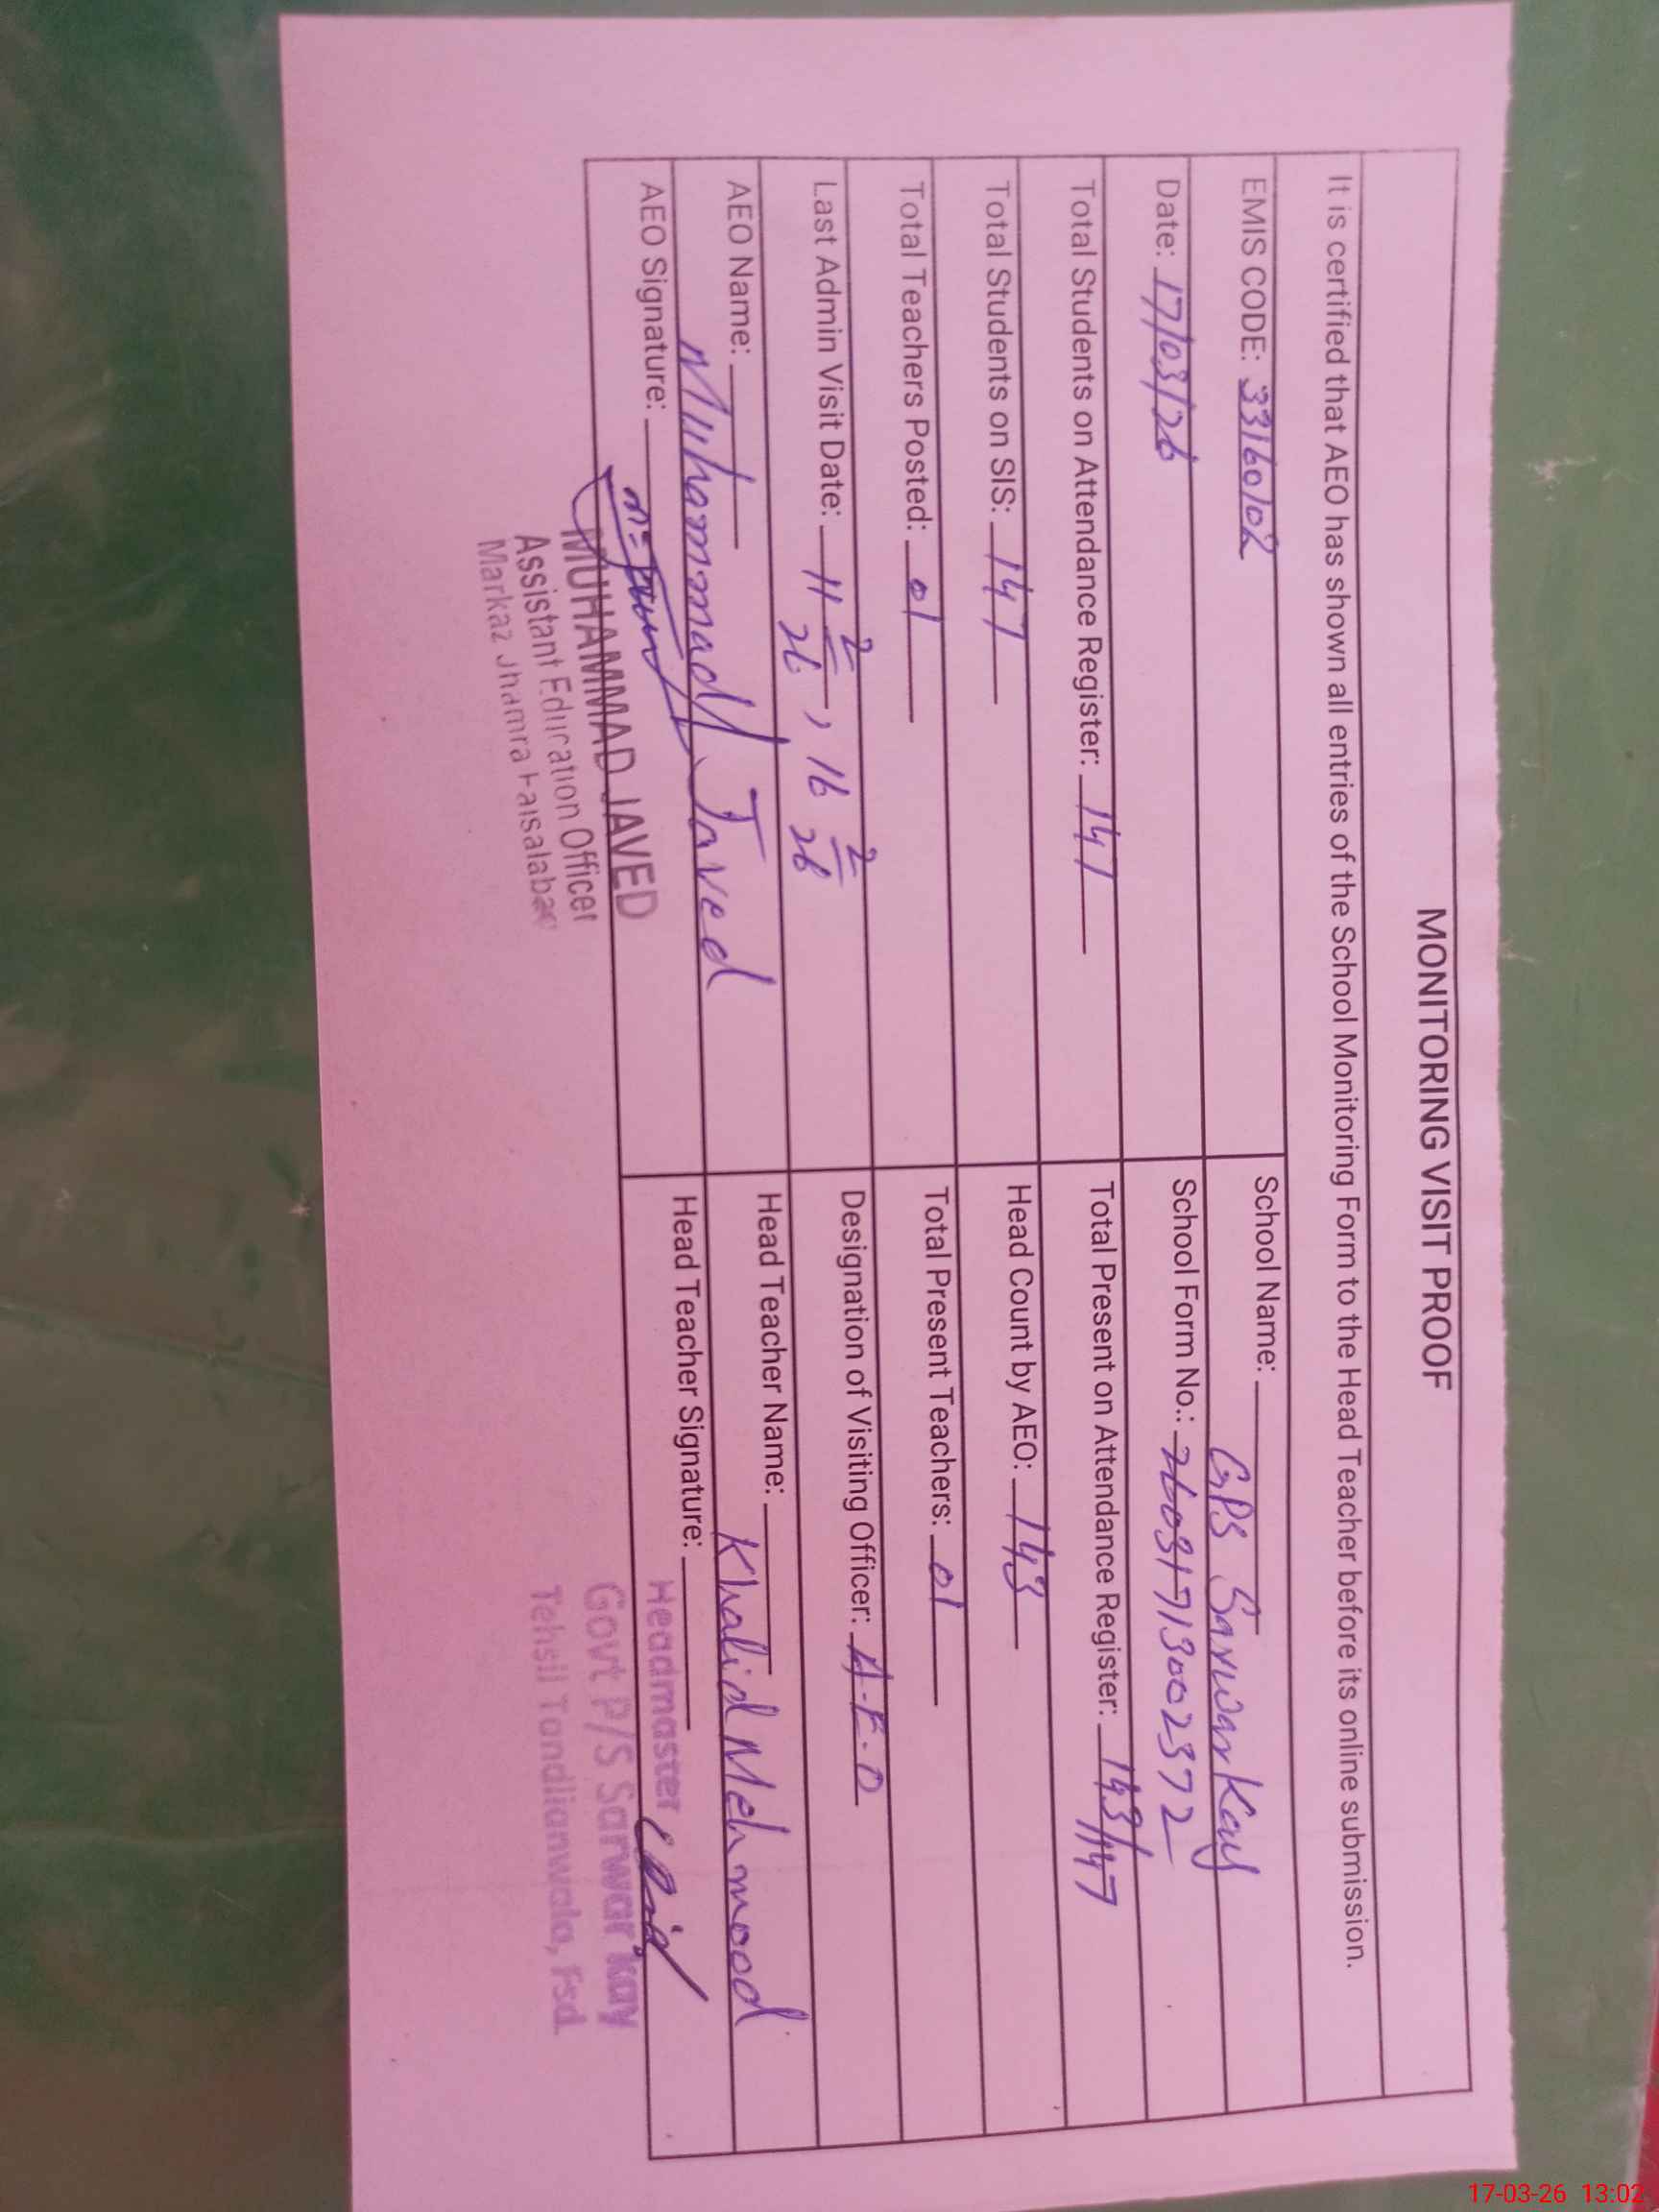 MONITORING VISIT PROOF
It is certified that AEO has shown all entries of the School Monitoring Form to the Head Teacher before its online submission.
EMIS CODE: 33160102 School Name: GPS Sarwar Kay
Date: 17/03/26 School Form No.: 26031713002372
Total Students on Attendance Register: 147 Total Present on Attendance Register: 143/147
Total Students on SIS: 147 Head Count by AEO: 143
Total Teachers Posted: 01 Total Present Teachers: 01
Last Admin Visit Date: 11 2/26, 16 2/26 Designation of Visiting Officer: A.E.O
AEO Name: Muhammad Javed Head Teacher Name: Khalid Mehmood
AEO Signature: Head Teacher Signature:
MUHAMMAD JAVED
Assistant Education Officer
Markaz Jhamra Faisalabad
Headmaster
Govt P/S Sarwar kay
Tehsil Tandlianwala, Fsd.
17-03-26 13:02